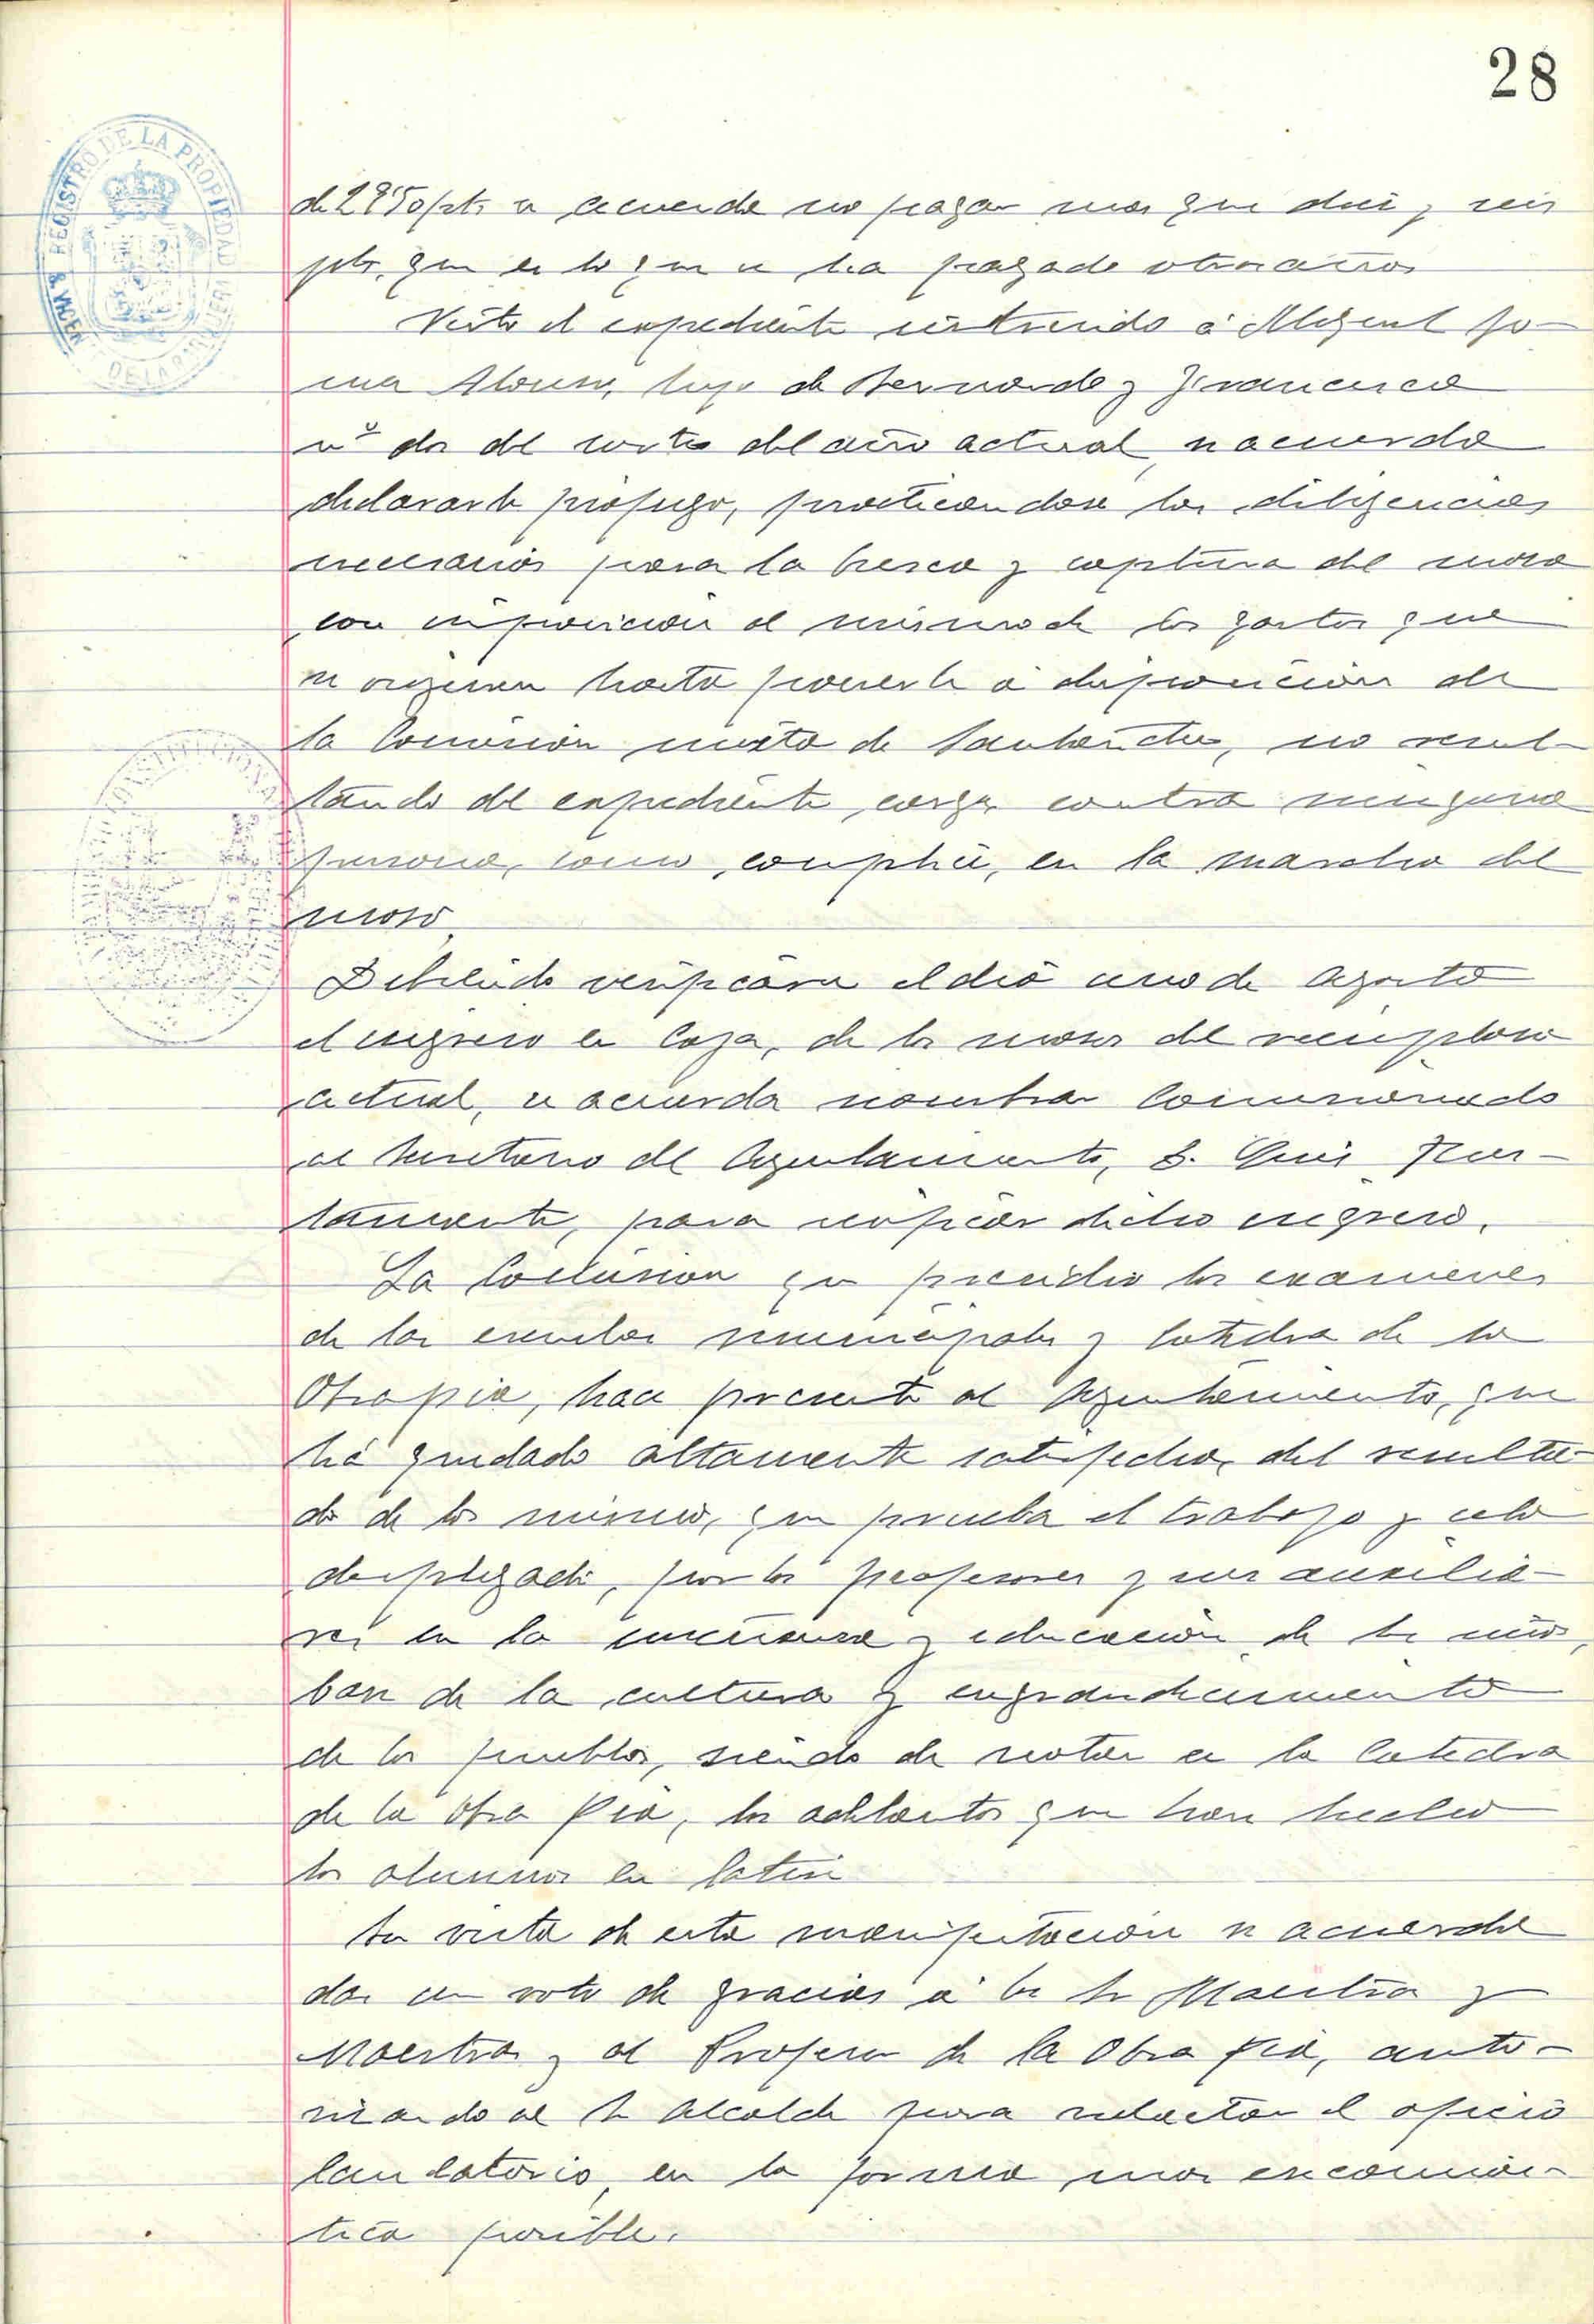 28
REGISTRO DE LA PROPIEDAD
S. VICEN
DE LA BARQUERA
CONSTITUCION
pts. se acuerda no pagar mas que diez y seis
pts. que es lo que se ha pagado otros años
Visto el expediente instruido á Miguel
Alonso, hijo de Bernardo y Francisca
nº dos del sorteo del año actual, se acuerda
declararle prófugo, practicandose las diligencias
necesarias para la busca y captura del mozo
con imposicion al mismo de los gastos que
se originen hasta ponerle á disposicion de
la Comision mixta de Santander, no resul-
tando del expediente cargo contra ninguna
persona, como complice, en la marcha del
mozo.
Debiendo verificarse el dia uno de Agosto
el ingreso en Caja, de los mozos del reemplazo
actual, se acuerda nombrar Comisionado
al Secretario del Ayuntamiento, D. Luis
para verificar dicho ingreso.
La Comision que presidió los examenes
de las escuelas municipales y Catedra de la
Obrapia, hace presente al Ayuntamiento, que
há quedado altamente satisfecha, del resulta-
do de los mismos, que prueba el trabajo y celo
desplegado, por los profesores y sus auxilia-
res en la enseñanza y educación de los niños,
base de la cultura y engrandecimiento
de los pueblos, siendo de notar en la Catedra
de la Obra Pia, los adelantos que han hecho
los alumnos en latin
En vista de esta manifestacion se acuerda
dar un voto de gracias á los Srs Maestros y
Maestras y al Profesor de la Obra pia, auto-
rizando al Sr Alcalde para redactar el oficio
laudatorio, en la forma mas encomiás-
tica posible.